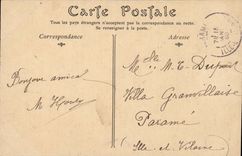 Carte Postale
Tous les pays étrangers n'acceptent pas la correspondance au recto.
Se renseigner à la poste.
Correspondance
Adresse
Melle M. T. Dupont
Bonjour amical
Villa Granvillaise
Paramé
(Ille et Vilaine)